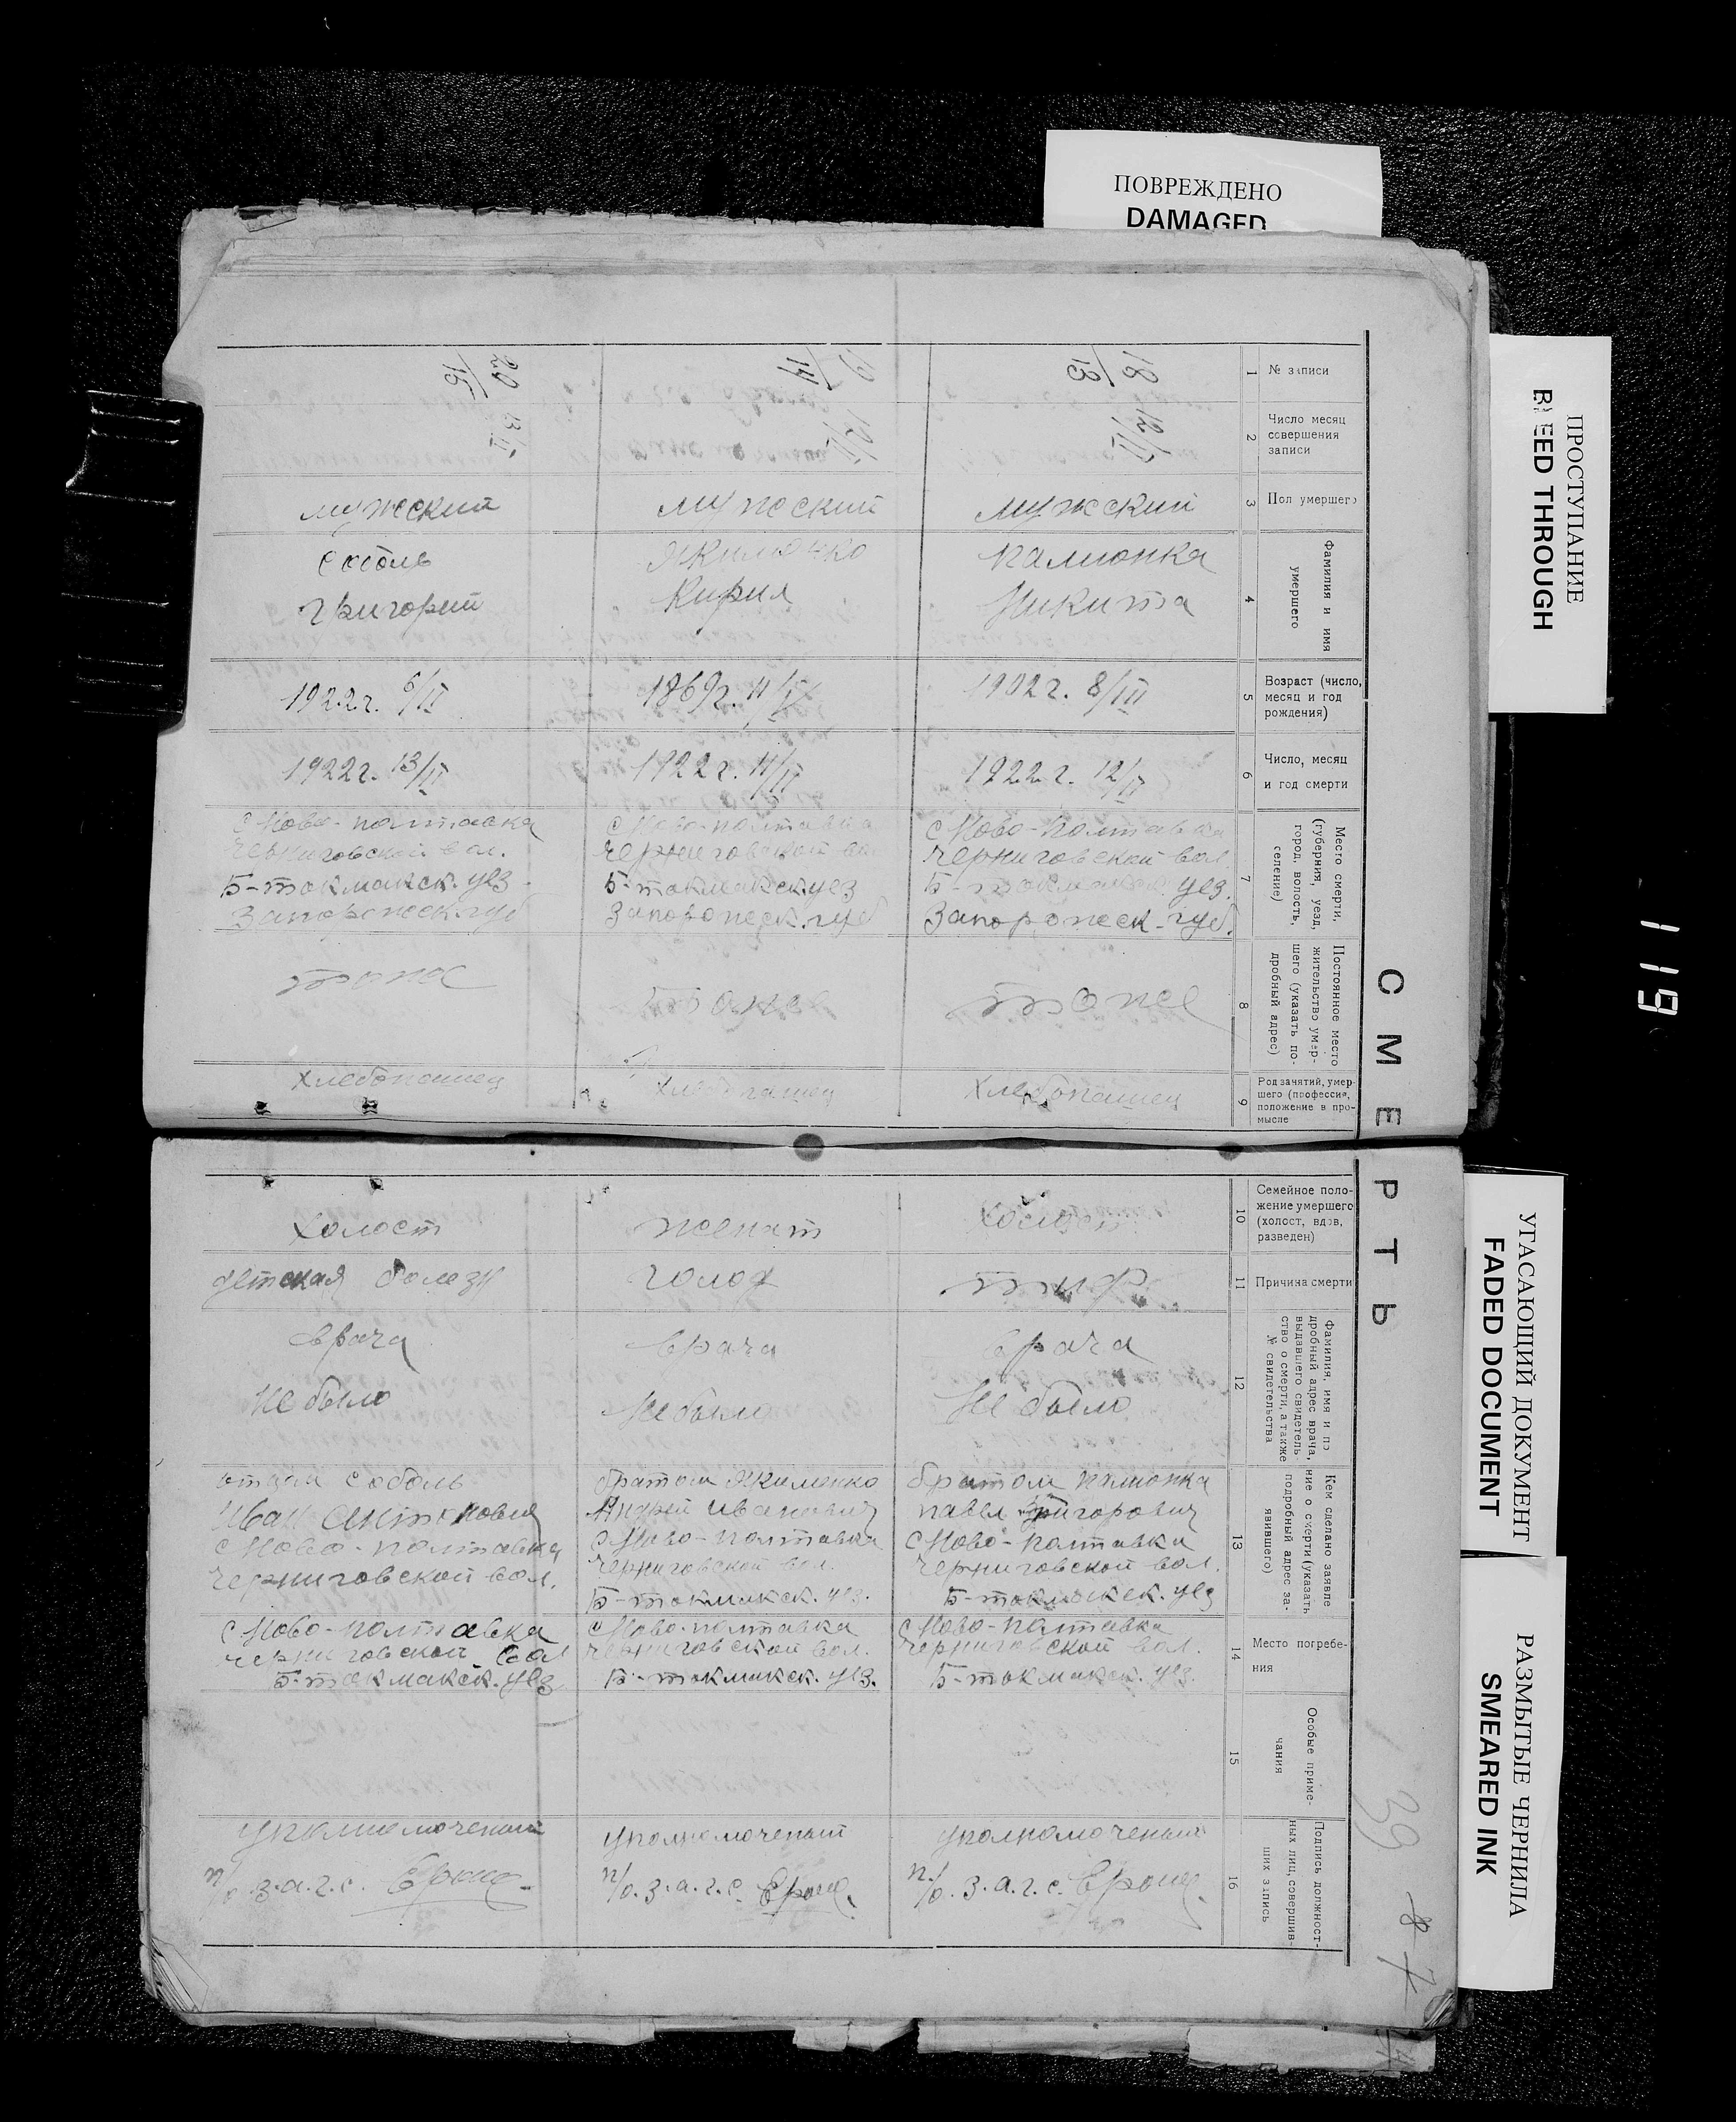 ПОВРЕЖДЕНО
DAMAGED
ПРОСТУПАНИЕ
BLEED THROUGH
УГАСАЮЩИЙ ДОКУМЕНТ
FADED DOCUMENT
РАЗМЫТЫЕ ЧЕРНИЛА
SMEARED INK
119
СМЕРТЬ
39
1
№ записи
2
Число месяц
совершения
записи
3
Пол умершего
4
Фамилия и имя
умершего
5
Возраст (число,
месяц и год
рождения)
6
Число, месяц
и год смерти
7
Место смерти,
(губерния, уезд,
город, волость,
селение)
8
Постоянное место
жительство умер-
шего (указать по-
дробный адрес)
9
Род занятий, умер-
шего (профессия,
положение в про-
мысле
10
Семейное поло-
жение умершего
(холост, вдов,
разведен)
11
Причина смерти
12
Фамилия, имя и по
дробный адрес врача,
выдавшего свидетель
ство о смерти, а также
№ свидетельства
13
Кем сделано заявле
ние о смерти (указать
подробный адрес за-
явившего)
14
Место погребе-
ния
15
Особые приме-
чания
16
Подпись должност-
ных лиц, совершив-
ших запись
18/13
12/IV
мужский
Палионка
Никита
1902 г. 8/III
1922 г. 12/IV
с Ново-полтавка
черниговской вол.
Б-токмакск. уез.
Запорожеск. губ.
тоже
хлебопашец
холост
тиф
врача
не было
братом Палионка
павел Григорович
с Ново-полтавка
черниговской вол.
Б-токмакск. уез
с Ново-полтавка
черниговской вол.
Б-токмакск. уез.
уполномоченый
п/о. з.а.г.с.
19/14
мужский
Якименко
Кирил
1869 г. 11/IX
1922 г. 11/IV
с Ново-полтавка
черниговской вол
Б-токмакск уез
Запорожеск. губ
тоже
хлебопашец
женат
голод
врача
не было
братом Якименко
Андрей Иванович
с Ново-полтавка
черниговской вол.
Б-токмакск. уез.
с Ново-полтавка
черниговской вол.
Б-токмакск. уез.
уполномоченый
п/о. з.а.г.с.
20/15
мужский
Соболь
Григорий
1922 г. 6/IV
1922 г. 13/IV
с Ново-полтавка
черниговской вол.
Б-токмакск. уез.
Запорожеск. губ
тоже
хлебопашец
холост
детская болезн
врача
не было
отцом Соболь
Иван Антонович
с Ново-полтавка
черниговской вол.
с Ново-полтавка
черниговской вол
Б-токмакск. уез
уполномоченый
п/о. з.а.г.с.